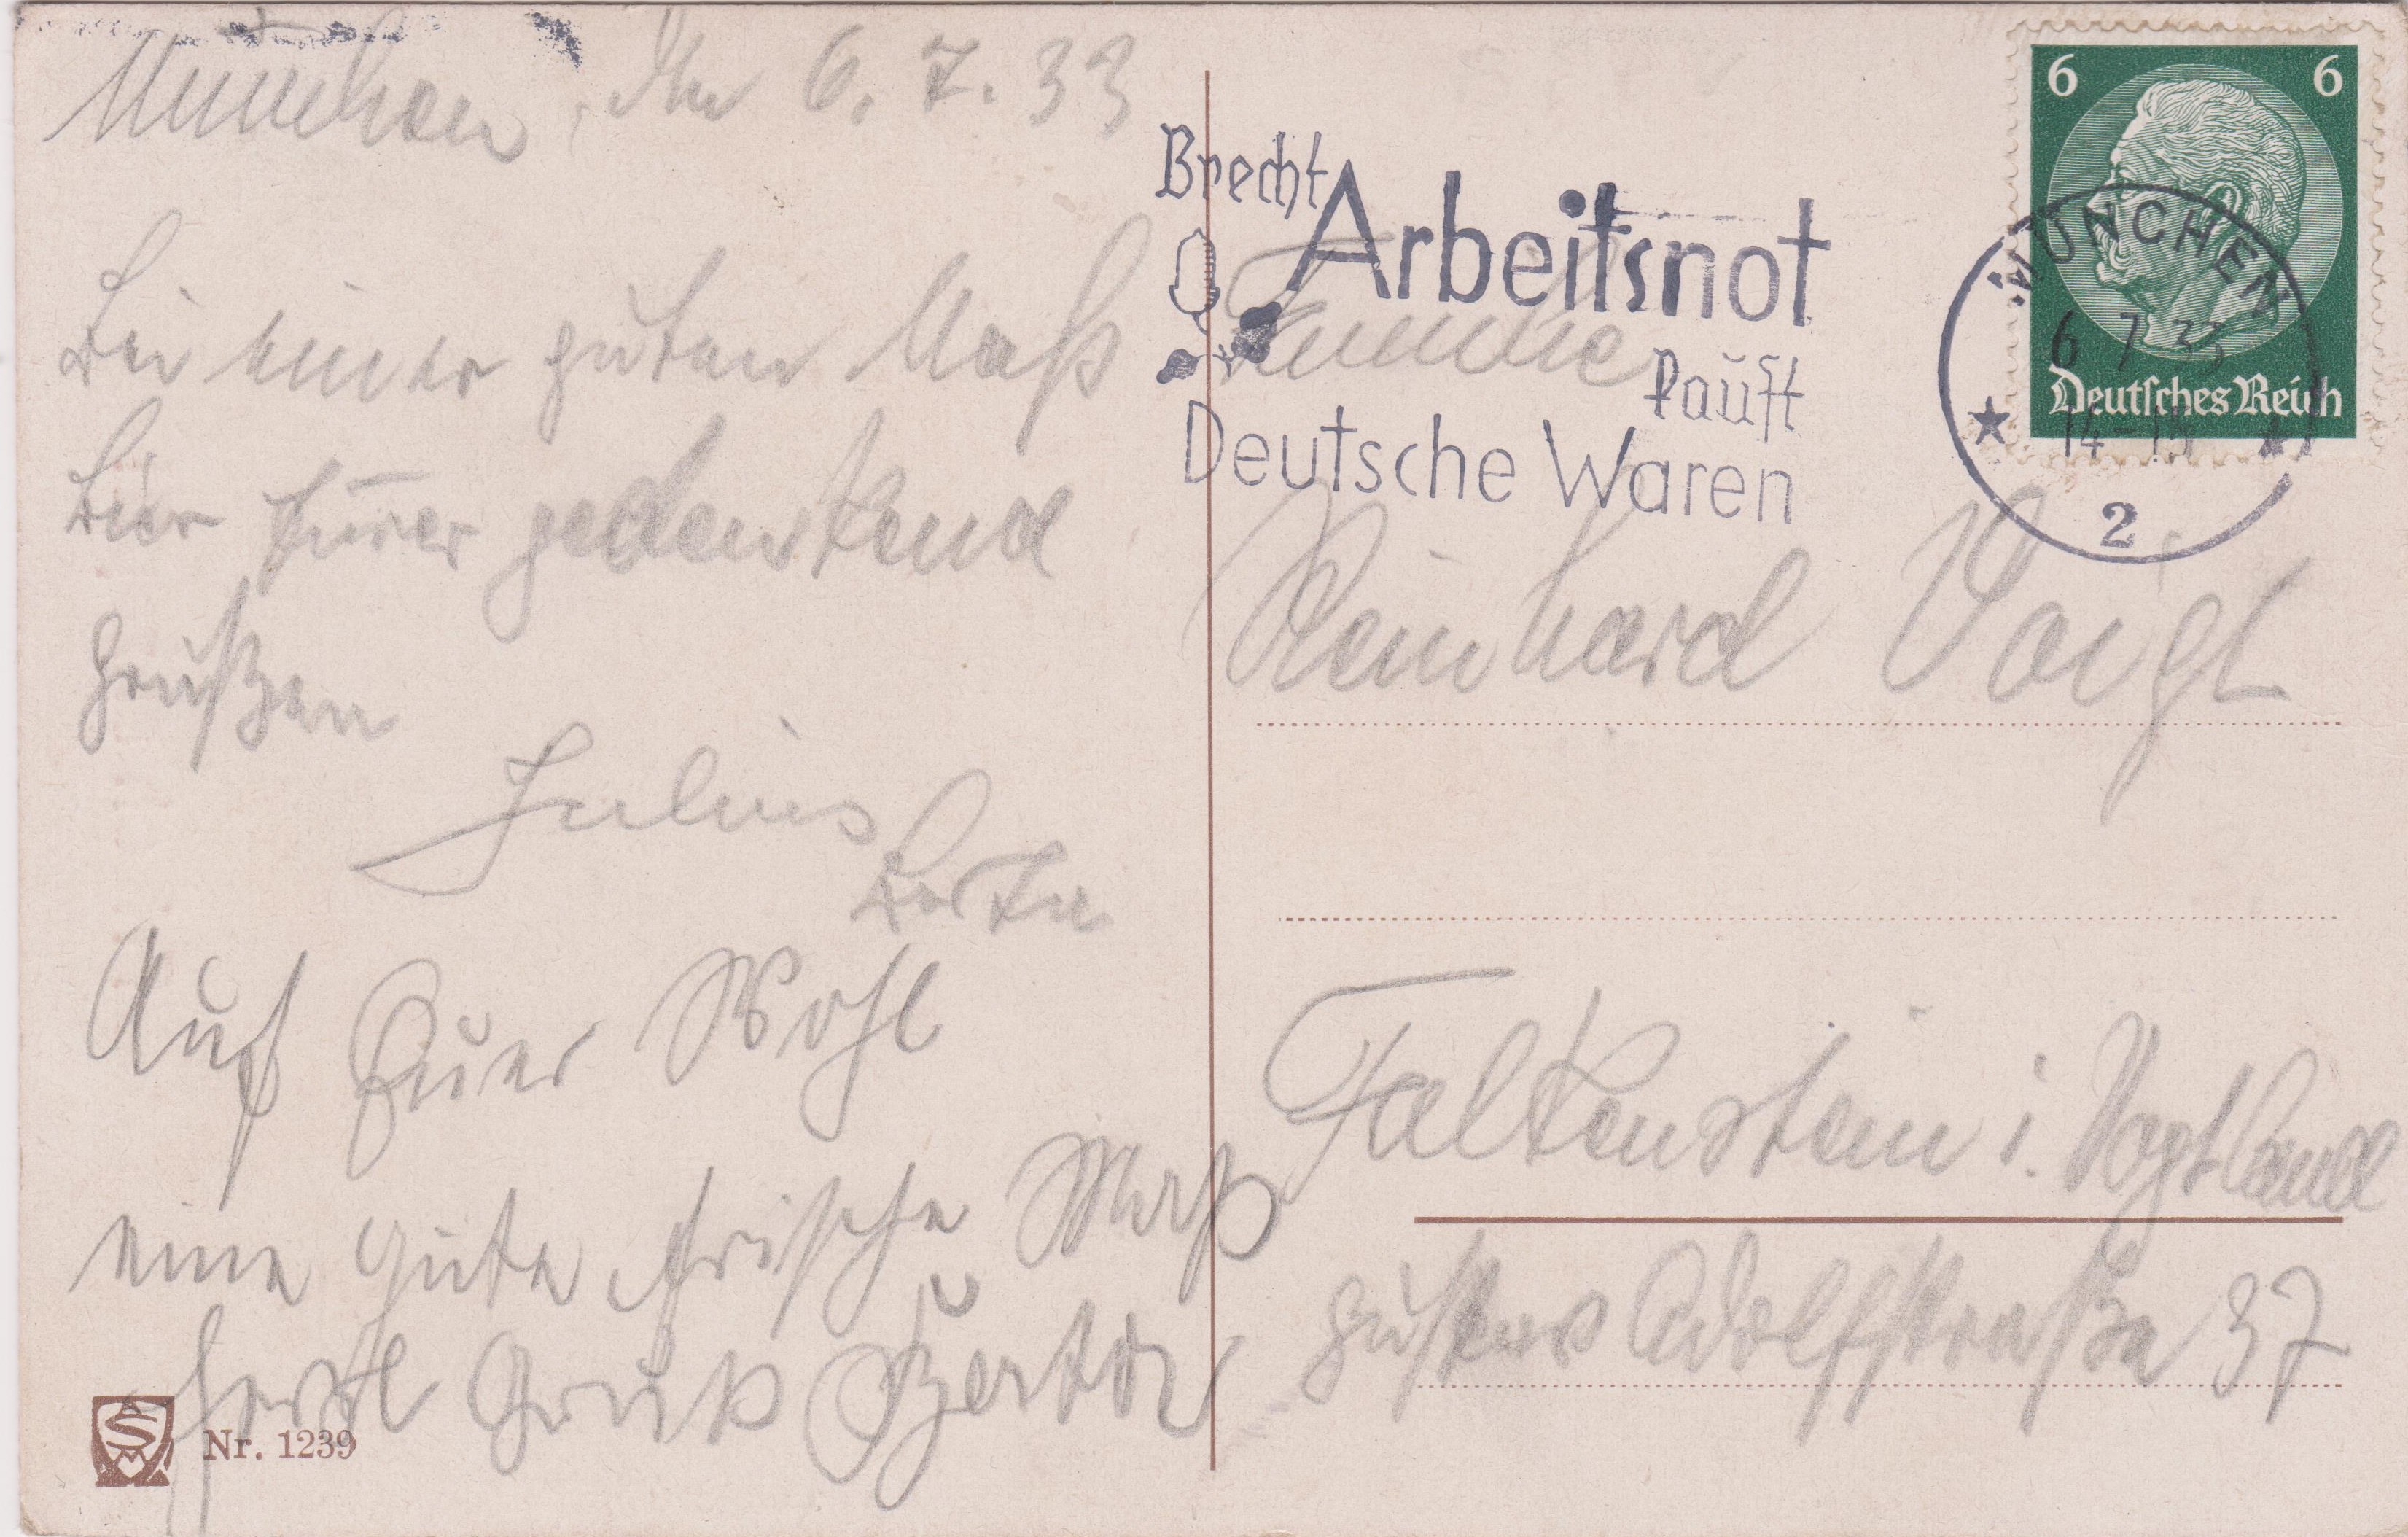 München, den 6. 7. 33
Bei einer guten Maß
Bier Eurer gedenkend
Grüßen
Julius
Berta
Auf Euer Wohl
eine gute frische Maß
Herzl Gruß
Nr. 1239
Brecht
Arbeitsnot
kauft
Deutsche Waren
6 6
Deutsches Reich
MÜNCHEN
6 7 33
2
Familie
Reinhard Voigt
Falkenstein i. Vogtland
Gustav Adolfstraße 37